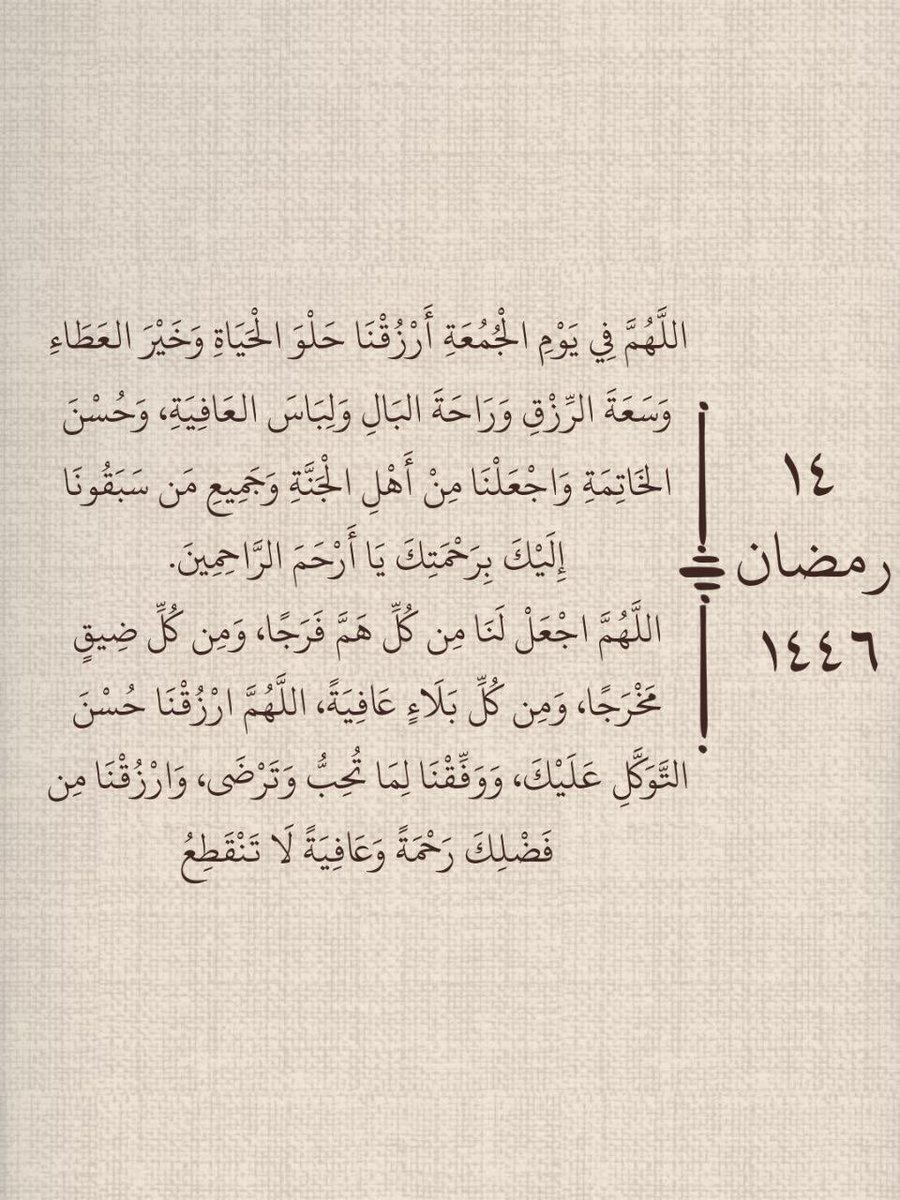 اللَّهُمَّ فِي يَوْمِ الْجُمُعَةِ أَرْزُقْنَا حَلْوَ الْحَيَاةِ وَخَيْرَ العَطَاءِ
وَسَعَةَ الرِّزْقِ وَرَاحَةَ البَالِ وَلِبَاسَ العَافِيَةِ، وَحُسْنَ
الخَاتِمَةِ وَاجْعَلْنَا مِنْ أَهْلِ الْجَنَّةِ وَجَمِيعِ مَن سَبَقُونَا
إِلَيْكَ بِرَحْمَتِكَ يَا أَرْحَمَ الرَّاحِمِينَ.
اللَّهُمَّ اجْعَلْ لَنَا مِن كُلِّ هَمَّ فَرَجًا، وَمِن كُلِّ ضِيقٍ
مَخْرَجًا، وَمِن كُلِّ بَلَاءٍ عَافِيَةً، اللَّهُمَّ ارْزُقْنَا حُسْنَ
التَّوَكَّلِ عَلَيْكَ، وَوَفِّقْنَا لِمَا تُحِبُّ وَتَرْضَى، وَارْزُقْنَا مِن
فَضْلِكَ رَحْمَةً وَعَافِيَةً لَا تَنْقَطِعُ
١٤
رمضان
١٤٤٦